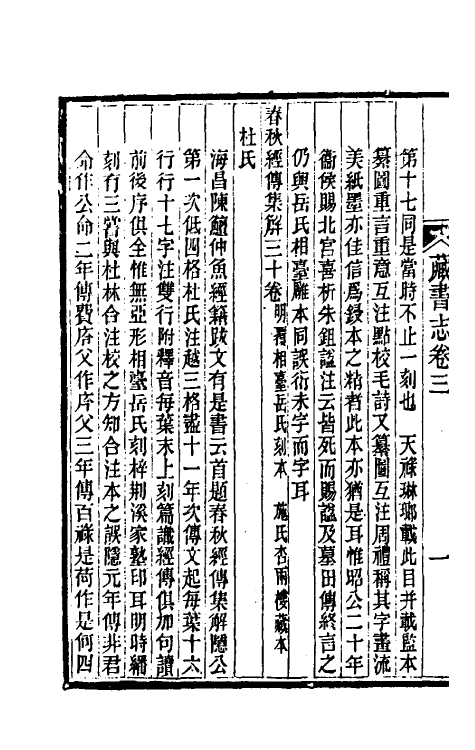 藏書志卷三
一
第十七同是當時不止一刻也　天祿琳瑯載此目并載監本
纂圖重言重意互注點校毛詩又纂圖互注周禮稱其字畫流
美紙墨亦佳信爲錽本之精者此本亦猶是耳惟昭公二十年
衞侯賜北宮喜析朱鉏諡注云皆死而賜諡及墓田傳終言之
仍與岳氏相臺雕本同誤衍未字而字耳
春秋經傳集解三十卷 明覆相臺岳氏刻本　施氏杏雨樓藏本
杜氏
海昌陳鱣仲魚經籍跋文有是書云首題春秋經傳集解隱公
第一次低四格杜氏注越三格盡十一年次傳文起每葉十六
行行十七字注雙行附釋音每葉末上刻篇識經傳俱加句讀
前後序俱全惟無亞形相臺岳氏刻梓荆溪家塾印耳明時繙
刻有三嘗與杜林合注校之方知合注本之誤隱元年傳非君
命作公命二年傳費庈父作庈父三年傳百祿是荷作是何四